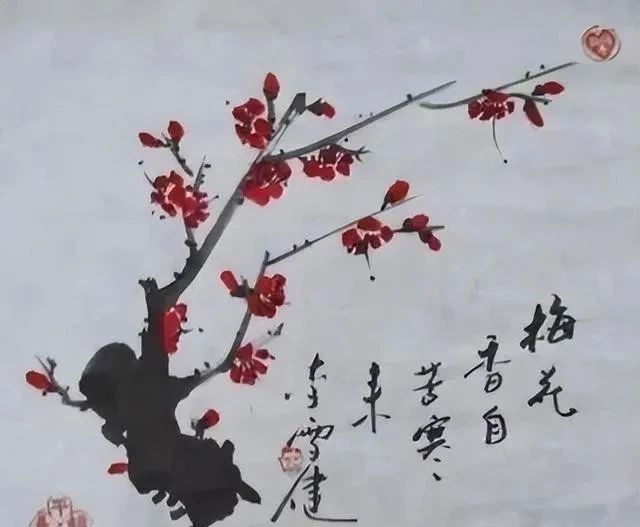 梅花
香自
苦寒
来
李雪健